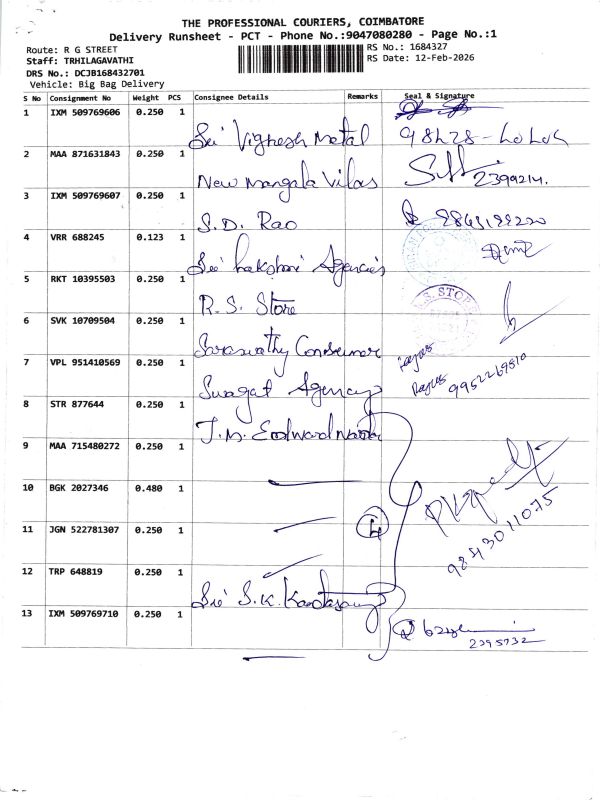 THE PROFESSIONAL COURIERS, COIMBATORE
Delivery Runsheet - PCT - Phone No.:9047080280 - Page No.:1
Route: R G STREET
RS No.: 1684327
Staff: TRHILAGAVATHI
RS Date: 12-Feb-2026
DRS No.: DCJB168432701
Vehicle: Big Bag Delivery
S No Consignment No Weight PCS Consignee Details Remarks Seal & Signature
1 IXM 509769606 0.250 1 Sri Vignesh Metal
2 MAA 871631843 0.250 1 New Mangala Vilas 2399214.
3 IXM 509769607 0.250 1 S.D. Rao
4 VRR 688245 0.123 1 Sri Lakshmi Agencies
5 RKT 10395503 0.250 1 R.S. Store
6 SVK 10709504 0.250 1 Saraswathy Condiments
7 VPL 951410569 0.250 1 Swagat Agency 9952269510
8 STR 877644 0.250 1 T.M.
9 MAA 715480272 0.250 1
10 BGK 2027346 0.480 1
11 JGN 522781307 0.250 1 4
9843011075
12 TRP 648819 0.250 1 Sri S.K. Kandasamy
13 IXM 509769710 0.250 1
2395732